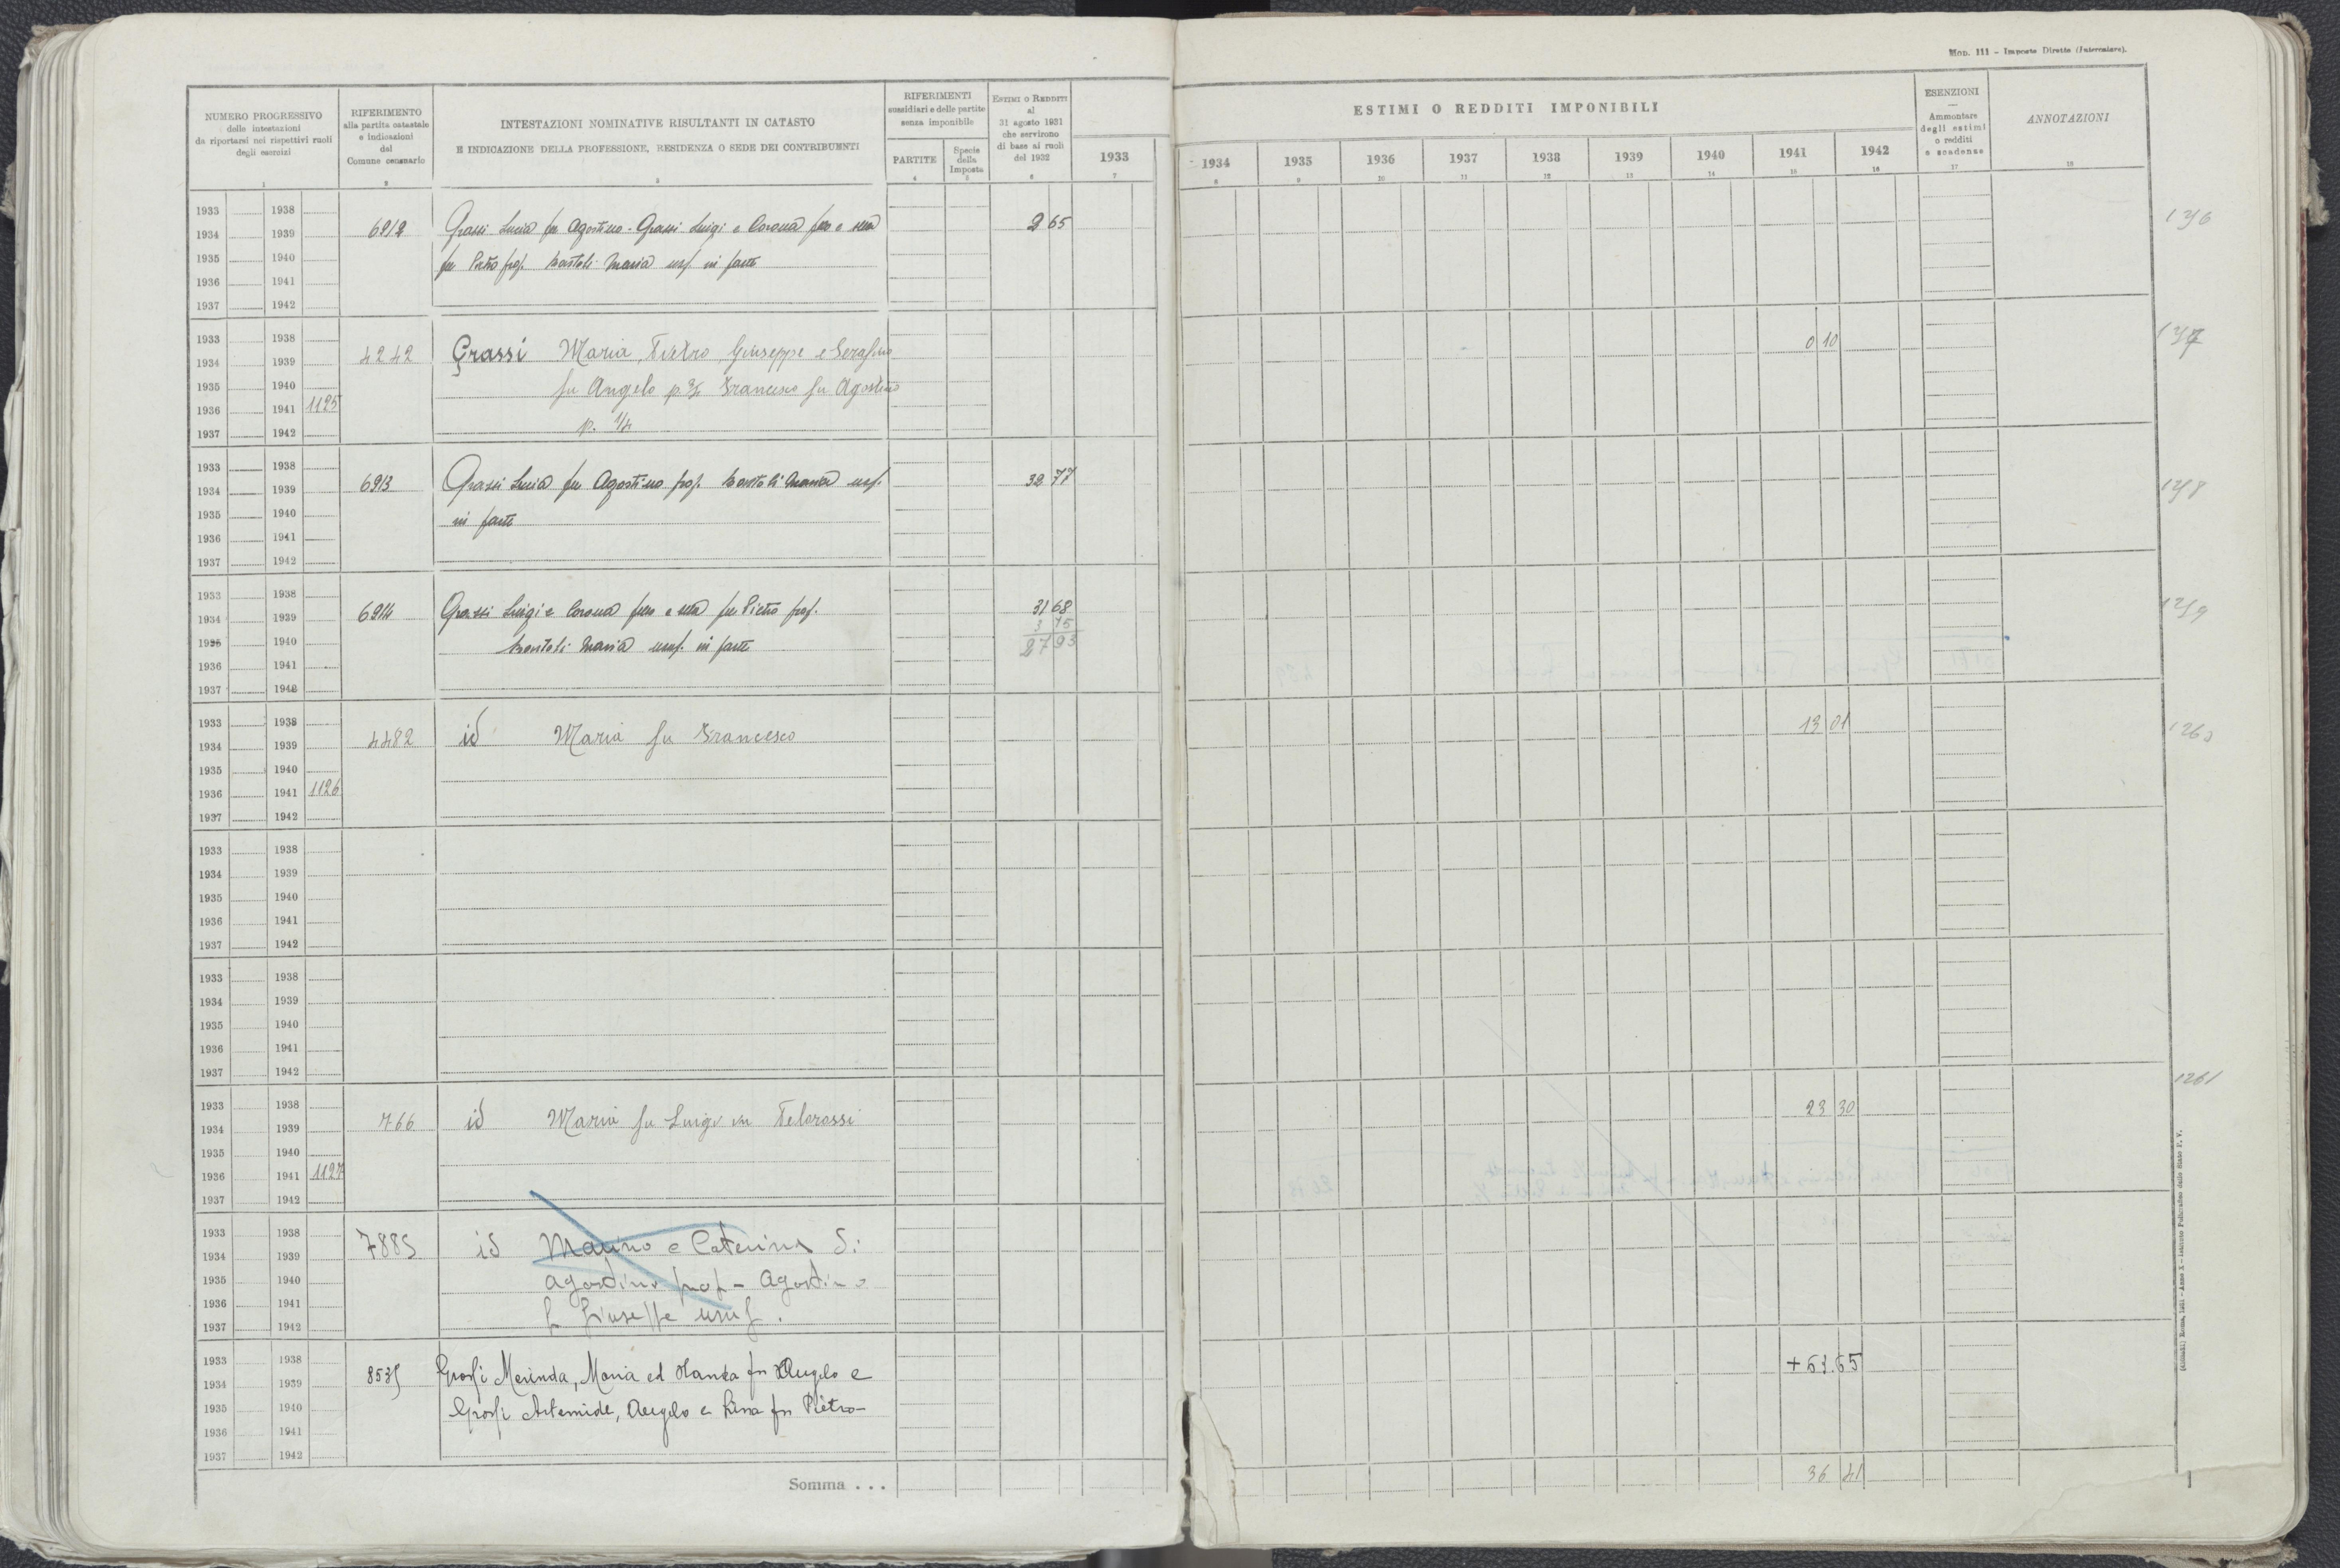 Mod. 111 – Imposte Dirette (Intercalare).
NUMERO PROGRESSIVO
delle intestazioni
da riportarsi nei rispettivi ruoli
degli esercizi
1
RIFERIMENTO
alla partita catastale
e indicazioni
del
Comune censuario
2
INTESTAZIONI NOMINATIVE RISULTANTI IN CATASTO
E INDICAZIONE DELLA PROFESSIONE, RESIDENZA O SEDE DEI CONTRIBUENTI
3
RIFERIMENTI
sussidiari e delle partite
senza imponibile
PARTITE
4
Specie
della
Imposta
5
ESTIMI O REDDITI
al
31 agosto 1931
che servirono
di base ai ruoli
del 1932
6
1933
7
ESTIMI O REDDITI IMPONIBILI
1934 1935 1936 1937 1938 1939 1940 1941 1942
8 9 10 11 12 13 14 15 16
ESENZIONI
—
Ammontare
degli estimi
o redditi
e scadenze
17
ANNOTAZIONI
18
1933 1938
1934 1939 6912 Grassi Lucia fu Agostino - Grassi Luigi e Corona fro e slla 2 65
1935 1940 fu Pietro prop. Bartoli Maria usf. in parte
1936 1941
1937 1942
1933 1938
1934 1939 4242 Grassi Maria, Pietro Giuseppe e Serafino 0 10
1935 1940 fu Angelo p. 3/4 Francesco fu Agostino
1936 1941 1125 p. 1/4
1937 1942
1933 1938
1934 1939 6913 Grassi Lucia fu Agostino prop. Bartoli Maria usf. 32 77
1935 1940 in parte
1936 1941
1937 1942
1933 1938
1934 1939 6914 Grassi Luigi e Corona fro e slla fu Pietro prop. 31 68
3 75
1935 1940 Bartoli Maria usuf. in parte 27 93
1936 1941
1937 1942
1933 1938
1934 1939 4482 id Maria fu Francesco 13 01
1935 1940
1936 1941 1126
1937 1942
1933 1938
1934 1939
1935 1940
1936 1941
1937 1942
1933 1938
1934 1939
1935 1940
1936 1941
1937 1942
1261
1933 1938
1934 1939 766 id Maria fu Luigi in Pelorossi 23 30
1935 1940
1936 1941 1127
1937 1942
1933 1938
1934 1939 7885 id Marino e Caterina di
1935 1940 Agostino prop - Agostino
1936 1941 f Giuseppe usuf.
1937 1942
1933 1938
1934 1939 Maria ed fu Angelo e
1935 1940 Artemide, Angelo e Lina fu Pietro
1936 1941
1937 1942
Somma . . . 36 41